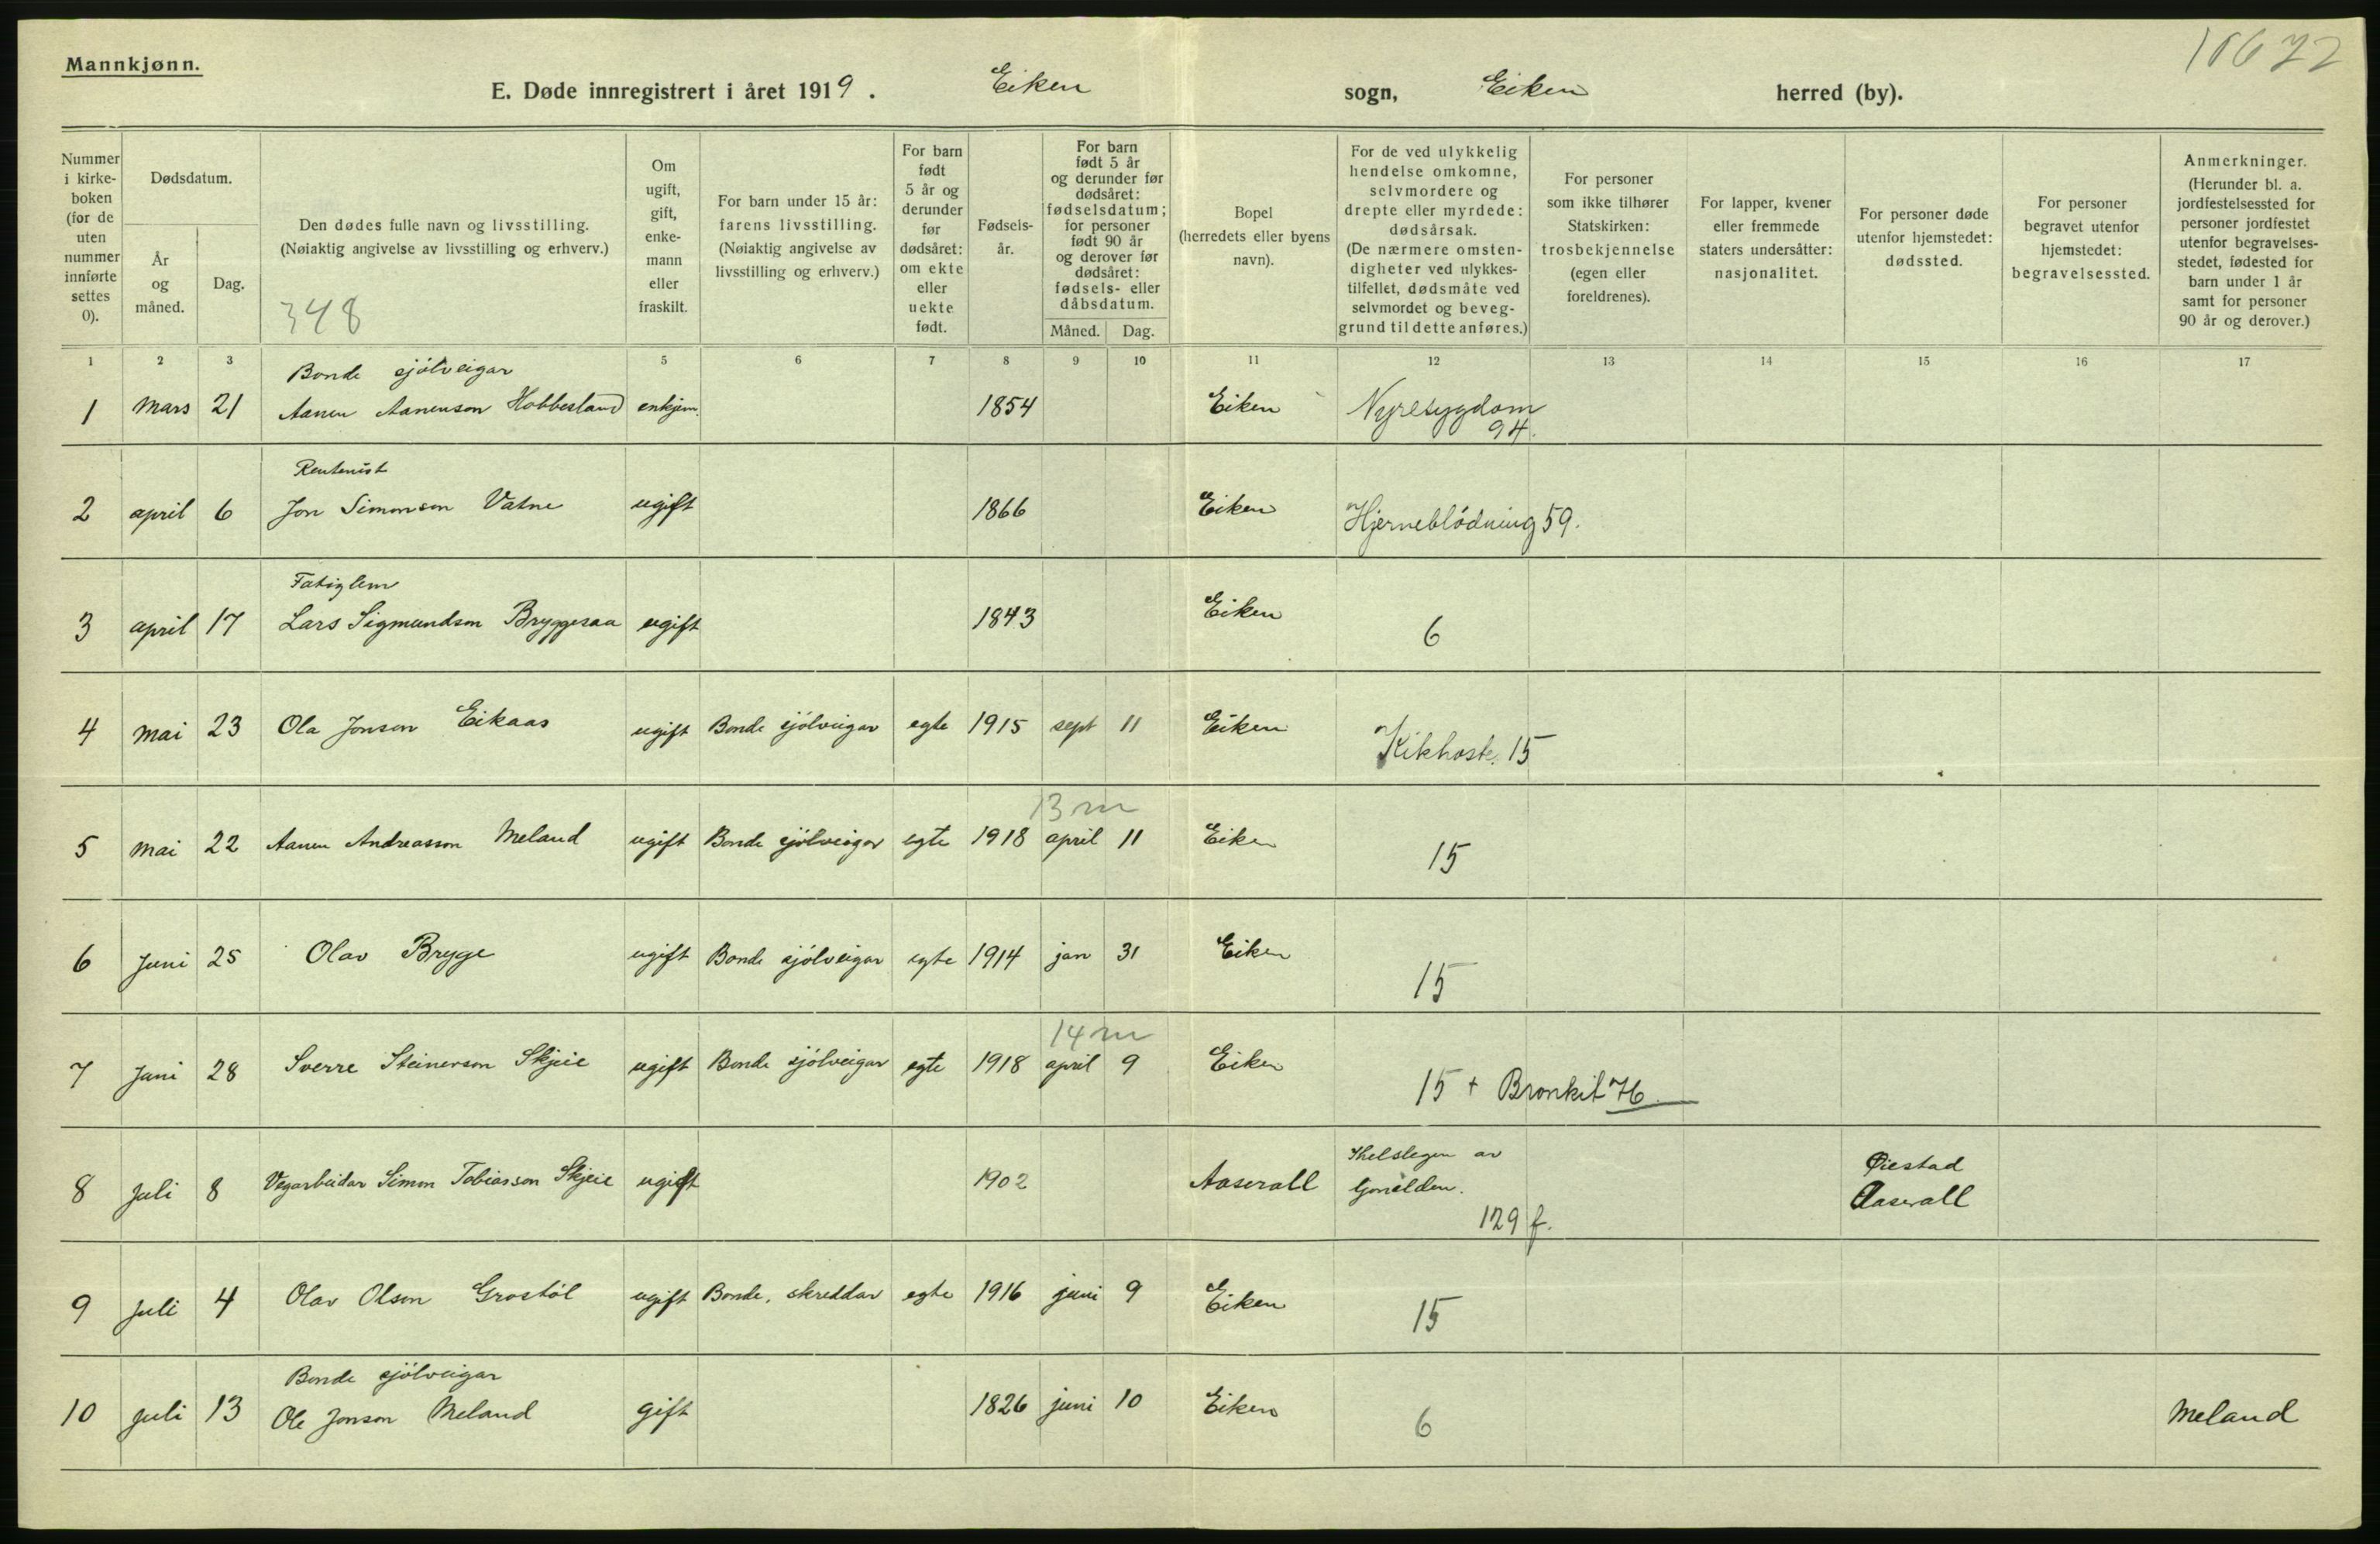 Mannkjønn.
10622
E. Døde innregistrert i året 1919. Eiken sogn, Eiken herred (by).
Nummer i kirke-boken (for de uten nummer innførte settes 0).
Dødsdatum.
År og måned.
Dag.
Den dødes fulle navn og livsstilling.
(Nøiaktig angivelse av livsstilling og erhverv.)
348
Om ugift, gift, enke-mann eller fraskilt.
For barn under 15 år: farens livsstilling. (Nøiaktig angivelse av livsstilling og erhverv.)
For barn født 5 år og derunder før dødsåret: om ekte eller uekte født.
Fødsels-år.
For barn født 5 år og derunder før dødsåret: fødselsdatum; for personer født 90 år og derover før dødsåret: fødsels- eller dåbsdatum.
Måned. Dag.
Bopel (herredets eller byens navn).
For de ved ulykkelig hendelse omkomne, selvmordere og drepte eller myrdede: dødsårsak. (De nærmere omsten-digheter ved ulykkes-tilfellet, dødsmåte ved selvmordet og beveg-grund til dette anføres.)
For personer som ikke tilhører Statskirken: trosbekjennelse (egen eller foreldrenes).
For lapper, kvener eller fremmede staters undersåtter: nasjonalitet.
For personer døde utenfor hjemstedet: dødssted.
For personer begravet utenfor hjemstedet: begravelsessted.
Anmerkninger. (Herunder bl. a. jordfestelsessted for personer jordfestet utenfor begravelses-stedet, fødested for barn under 1 år samt for personer 90 år og derover.)
1 2 3 5 6 7 8 9 10 11 12 13 14 15 16 17
Bonde sjölveigar
1 Mars 21 Aanen Aanenson Hobbesland enkjem. 1854 Eiken Nyresygdom
94.
Rentenist
2 april 6 Jon Simonson Vatne ugift 1866 Eiken Hjerneblödning 59.
Fatiglem
3 april 17 Lars Sigmundson Bryggesaa ugift 1843 Eiken 6
4 Mai 23 Ola Jonson Eikaas ugift Bonde sjölveigar egte 1915 sept 11 Eiken Kikhoste. 15
13 m
5 Mai 22 Aanen Andreasson Meland ugift Bonde sjölveigar egte 1918 april 11 Eiken 15
6 Juni 25 Olav Brygge ugift Bonde sjölveigar egte 1914 jan 31 Eiken 15
14 m
7 Juni 28 Sverre Steinerson Skjeie ugift Bonde sjölveigar egte 1918 april 9 Eiken 15 + Bronkit 76.
8 Juli 8 Vegarbeidar Simon Tobiasson Skjeie ugift 1902 Aaserall Ihelslegen av
129 f.
Øiestad
Aaserall
9 Juli 4 Olav Olson Grostöl ugift Bonde, skreddar egte 1916 juni 9 Eiken 15
Bonde sjölveigar
10 Juli 13 Ole Jonson Meland gift 1826 juni 10 Eiken 6 Meland